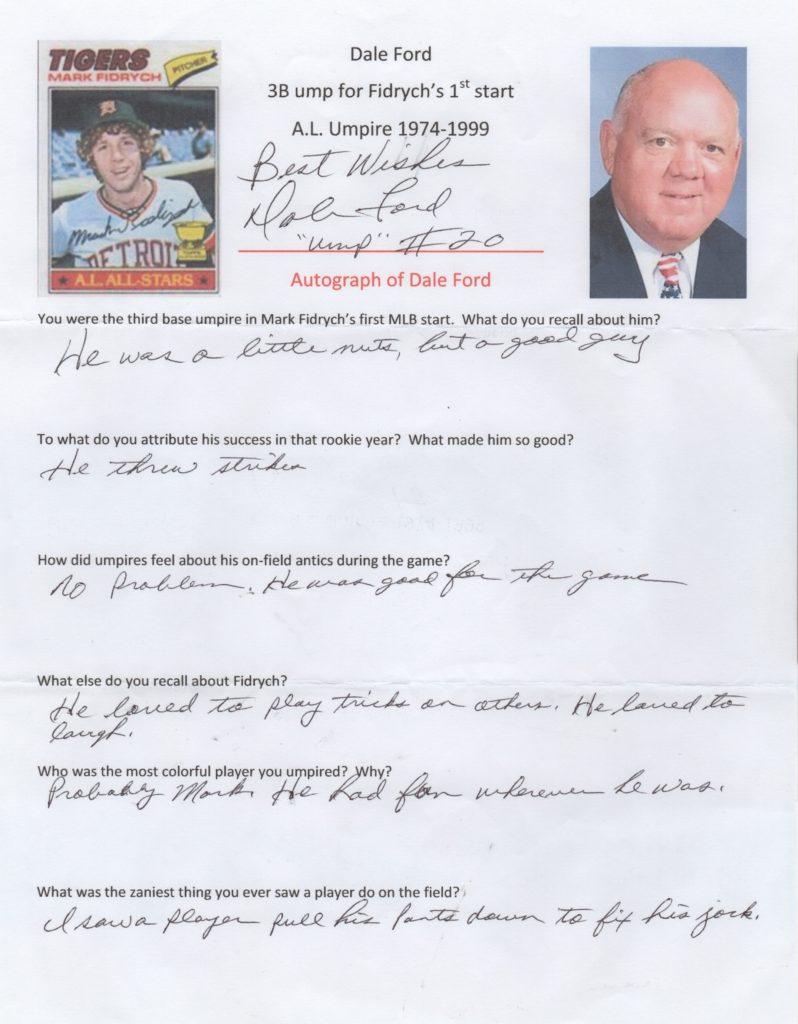 TIGERS
MARK FIDRYCH
PITCHER
Mark Fidrych
DETROIT
TOPPS
★ A.L. ALL-STARS ★
Dale Ford
3B ump for Fidrych's 1st start
A.L. Umpire 1974-1999
Best Wishes
Dale Ford
"ump" #20
Autograph of Dale Ford
You were the third base umpire in Mark Fidrych's first MLB start. What do you recall about him?
He was a little nuts, but a good guy
To what do you attribute his success in that rookie year? What made him so good?
He threw strikes
How did umpires feel about his on-field antics during the game?
No problem. He was good for the game
What else do you recall about Fidrych?
He loved to play tricks on others. He loved to
laugh.
Who was the most colorful player you umpired? Why?
Probably Mark. He had fun wherever he was.
What was the zaniest thing you ever saw a player do on the field?
I saw a player pull his pants down to fix his jock.